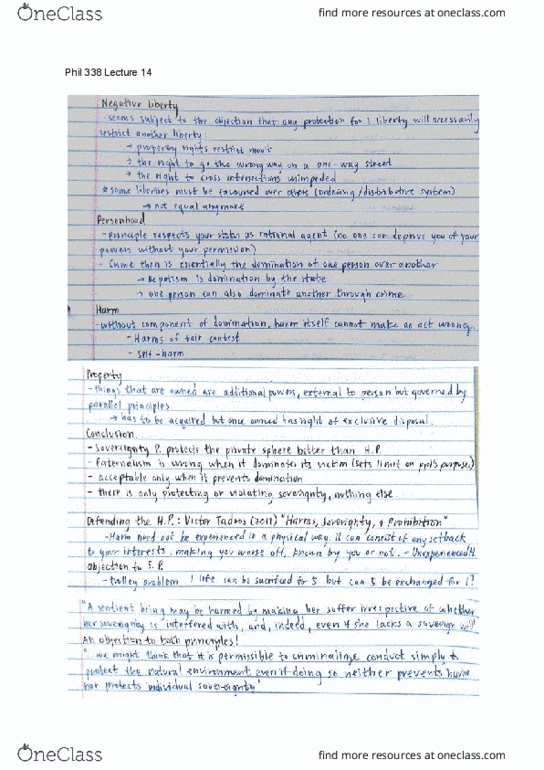 OneClass
find more resources at oneclass.com
Phil 338 Lecture 14
Negative liberty
-seems subject to the objection that any protection for 1 liberty will necessarily
restrict another liberty:
→ property rights restrict mov't
→ the right to go the wrong way on a one-way street
→ the right to cross intersections unimpeded
* some liberties must be favoured over others (ordering/distributive system)
→ not equal anymore
Personhood
-principle respects your status as rational agent (no one can deprive you of your
powers without your permission)
- Crime then is essentially the domination of one person over another
→ Despotism is domination by the state
→ one person can also dominate another through crime
Harm
-without component of domination, harm itself cannot make an act wrong
- Harms of fair contest
- Self-harm
Property
-things that are owned are additional powers, external to person but governed by
parallel principles
→ has to be acquired but once owned has right of exclusive disposal.
Conclusion
- Sovereignty P. protects the private sphere better than H.P.
- Paternalism is wrong when it dominates its victim (sets limit on ppl's purpose)
- acceptable only when it prevents domination
- there is only protecting or violating sovereignty, nothing else
Defending the H.P.: Victor Tadros (2011) "Harms, Sovereignty, & Prohibition"
-Harm need not be experienced in a physical way, it can consist of any setback
to your interests, making you worse off, known by you or not. - Unexperienced H
Objection to S.P.
- Trolley problem 1 life can be sacrificed for 5 but can 5 be exchanged for 1?
"A sentient being may be harmed by making her suffer irrespective of whether
her sovereignty is interfered with, and, indeed, even if she lacks a sovereign will"
An objection to both principles!
"we might think that it is permissible to criminalize conduct simply to
protect the natural environment even if doing so neither prevents harm
nor protects individual sovereignty"
OneClass
find more resources at oneclass.com